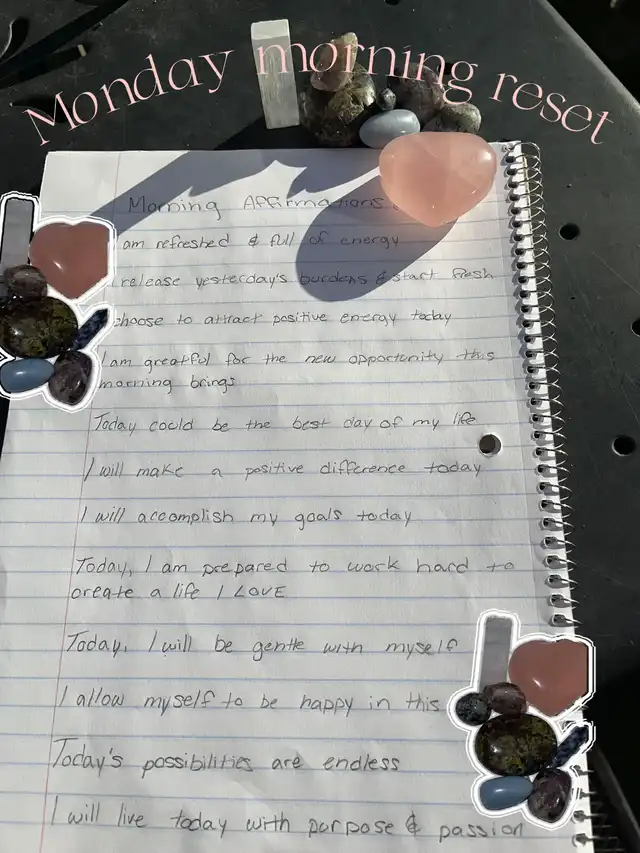 Monday morning reset
Morning Affirmations
am refreshed & full of energy
I release yesterday's burdens & start fresh
choose to attract positive energy today
I am greatful for the new opportunity this
morning brings
Today could be the best day of my life
I will make a positive difference today
I will accomplish my goals today
Today, I am prepared to work hard to
create a life I LOVE
Today, I will be gentle with myself
I allow myself to be happy in this
Today's possibilities are endless
I will live today with purpose & passion